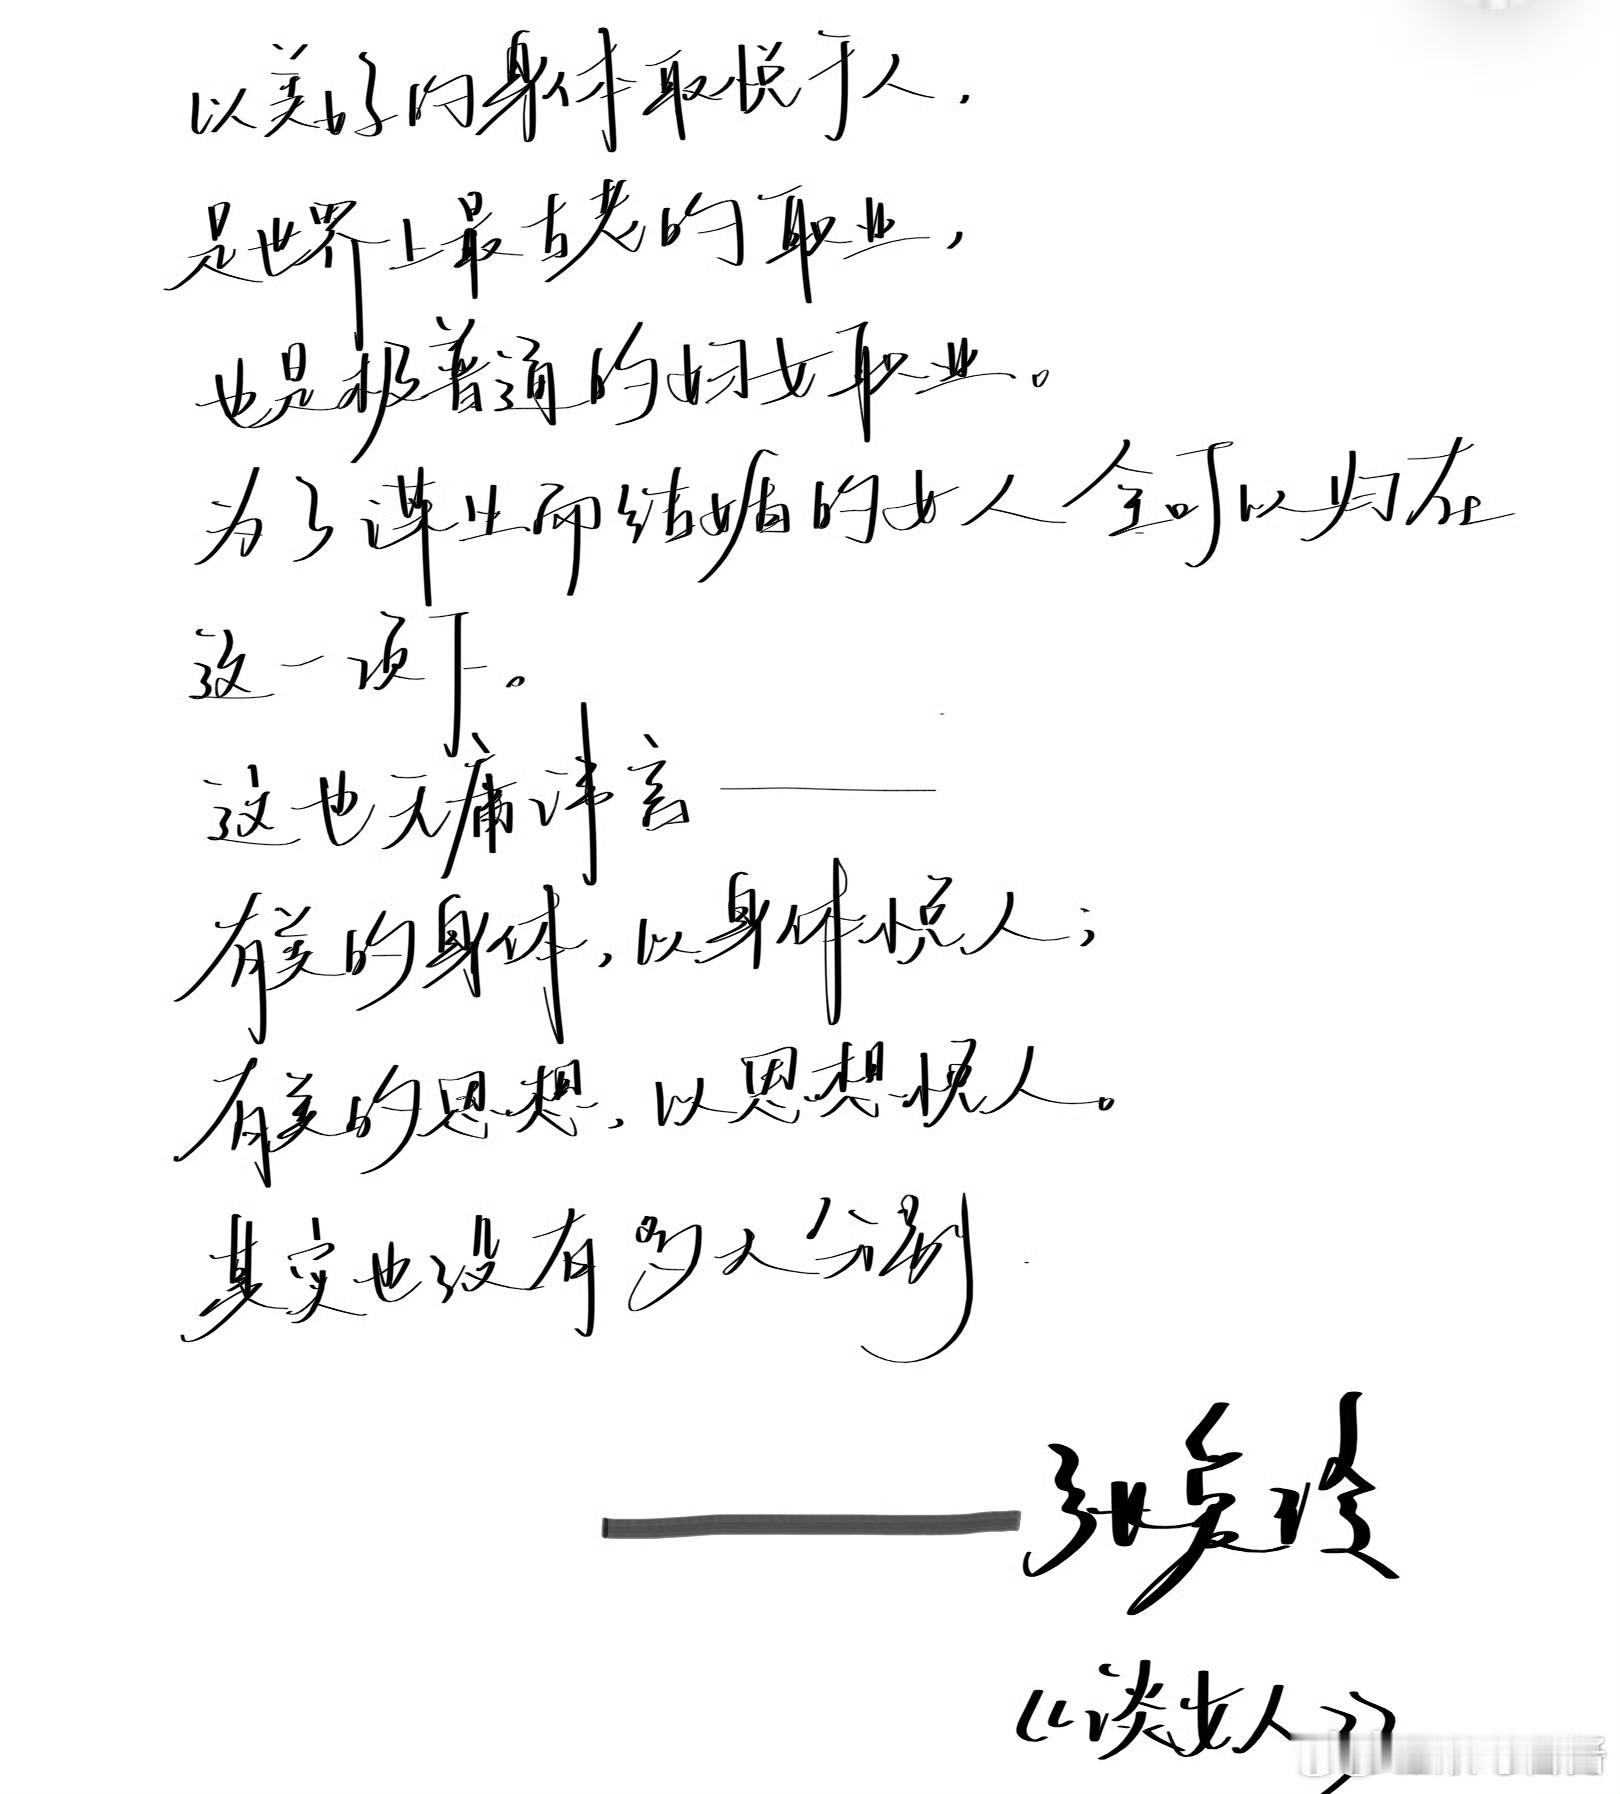 以美好的身体取悦于人.
是世界上最古老的职业,
也是极普通的妇女职业。
为了谋生而结婚的女人全可以归在
这一项下。
这也无庸讳言——
有美的身体,以身体悦人;
有美的思想,以思想悦人。
其实也没有多大分别
——张爱玲
《谈女人》